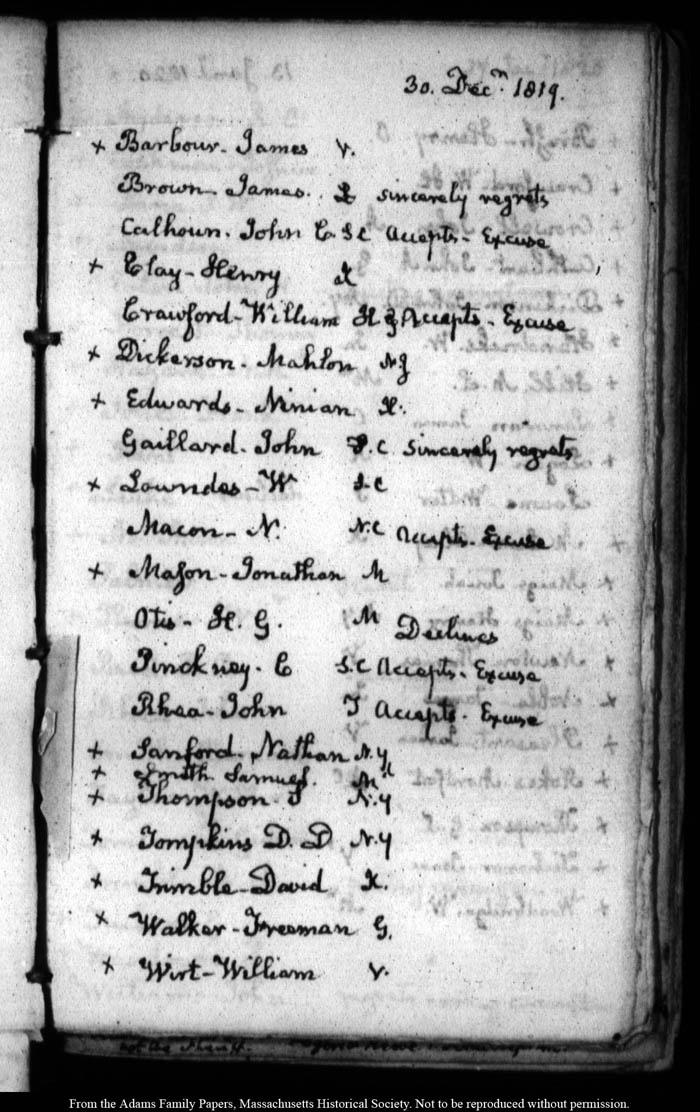 30. Decr. 1819.
+ Barbour- James V.
Brown- James. L sincerely regrets
Calhoun. John C. S C Accepts- Excuse
+ Clay- Henry K
Crawford- William H G Accepts- Excuse
+ Dickerson- Mahlon NJ
+ Edwards- Ninian Il.
Gaillard. John S.C sincerely regrets
+ Lowndes- W S.C
Macon- N. N.C Accepts. Excuse
+ Mason- Jonathan M
Otis- H. G. M Declines
Pinckney- C S.C Accepts- Excuse
Rhea- John T Accepts- Excuse
+ Sanford. Nathan N.Y
+ Smith. Samuel. Md
+ Thompson- J N.Y
+ Tompkins D. D N.Y
+ Trimble- David K.
+ Walker- Freeman G.
+ Wirt- William V.
From the Adams Family Papers, Massachusetts Historical Society. Not to be reproduced without permission.